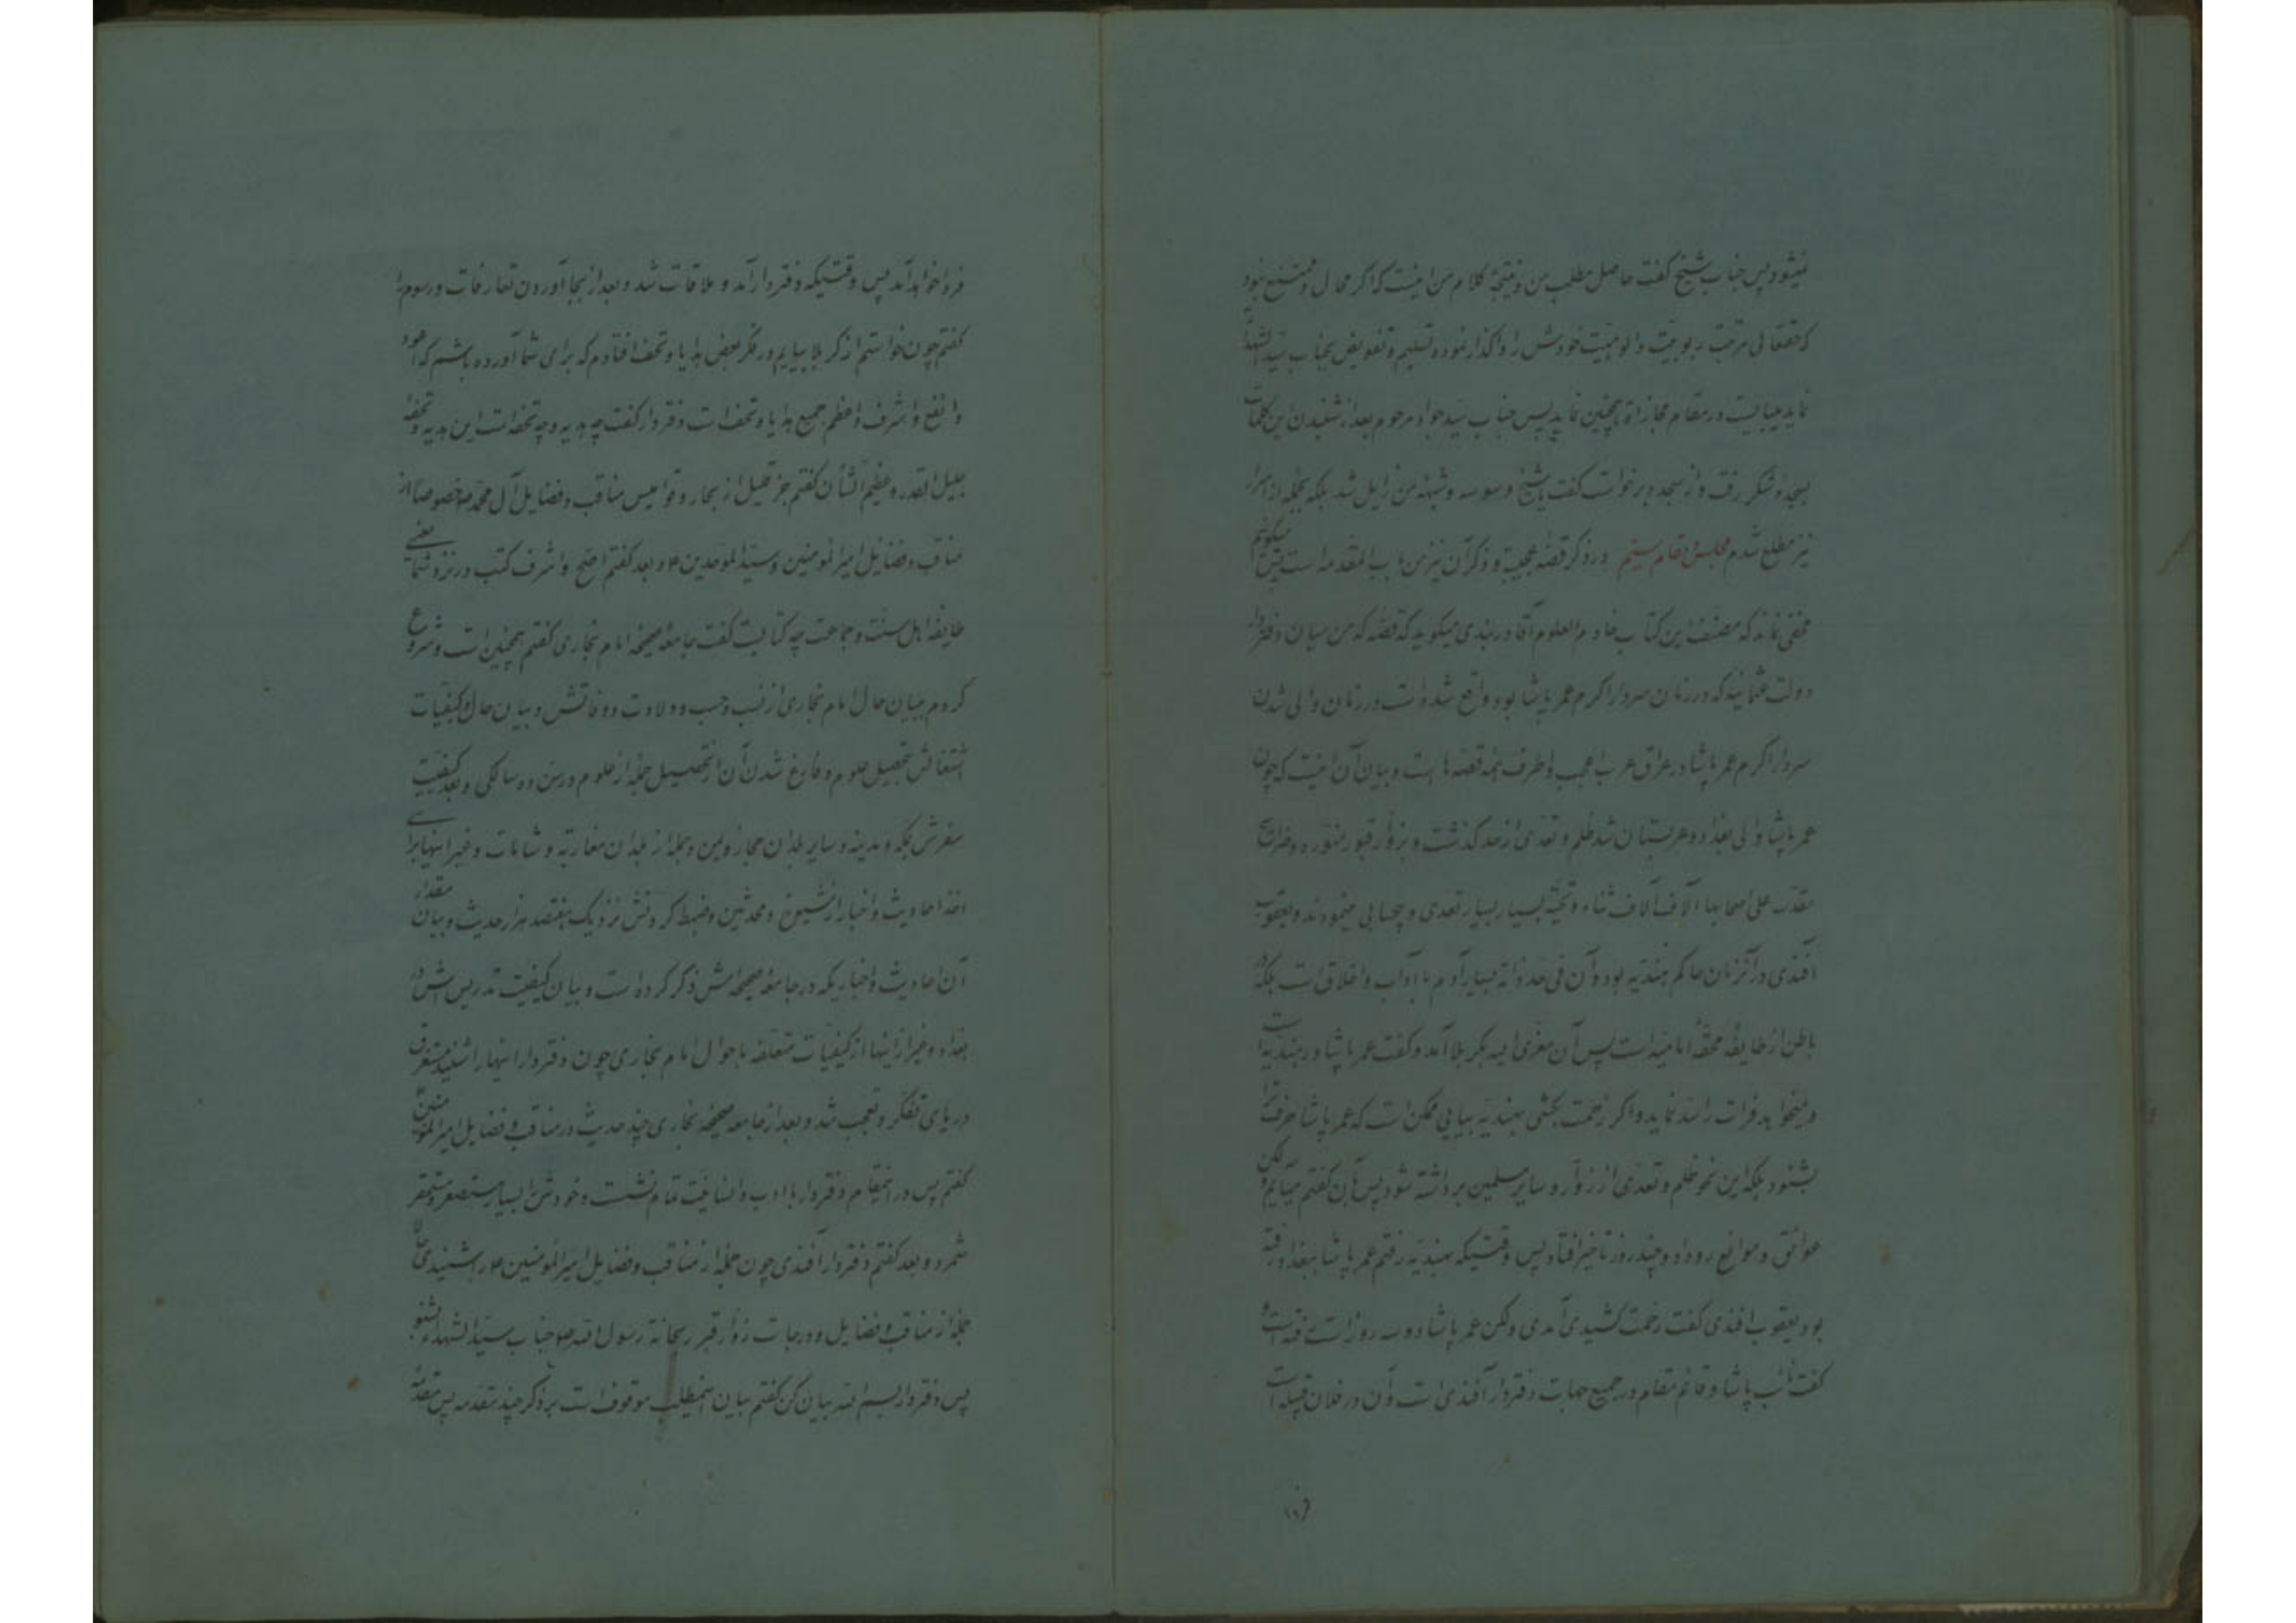 نمیشود پس جناب شیخ گفت حاصل مطلب من و نتیجهٔ کلام من اینست که اگر محال و ممتنع نبود
که حقتعالی مرتبت ربوبیت و الوهیت خودش را واگذار نموده و تسلیم و تفویض بجناب سید الشهداء
نماید میبایست در مقام مجازاة همچنین نماید پس جناب سید جواد مرحوم بعد از شنیدن این کلمات
بسجدهٔ شکر رفت و از سجده برخواست گفت یا شیخ وسوسه و شبههٔ من زایل شد بلکه بجمله از اسرار
نیز مطلع شدم مجلس و مقام سیم در ذکر قصهٔ عجیبه و ذکر آن نیز من باب المقدمه است پس میگوئیم
مخفی نماند که مصنف این کتاب خادم العلوم آقا دربندی میگوید که قصهٔ که من میان دفتردار
دولت عثمانیه که در زمان سردار اکرم عمر پاشا بود واقع شده است در زمان والی شدن
سردار اکرم عمر پاشا در عراق عرب اعجب و اطرف همه قصه ها است و بیان آن اینست که چون
عمر پاشا والی بغداد و عربستان شد ظلم و تعدی از حد گذشت و بزوار قبور منوره و ضرایح
مقدسه علی اصحابها آلاف آلاف ثناء و تحیة بسیار بسیار تعدی و بیحسابی مینمودند و یعقوب
آفندی در آنزمان حاکم هندیه بود و آن فی حد ذاته بسیار آدم با آداب و اخلاق است بلکه در
باطن از طایفهٔ محقهٔ امامیه است پس آن مغزی الیه بکربلا آمد و گفت عمر پاشا در هندیه است
و میخواهد فرات را سد نماید و اگر زحمت بکشی بهندیه بیایی ممکن است که عمر پاشا حرف ترا
بشنود بلکه این نحو ظلم و تعدی از زوار و سایر مسلمین برداشته شود پس بآن گفتم میآیم و لکن
عوائق و موانع روداد و چند روز تاخیر افتاد پس وقتیکه بهندیه رفتم عمر پاشا ببغداد رفته
بود یعقوب افندی گفت زحمت کشیدی آمدی ولکن عمر پاشا دو سه روز است رفته است و
گفت نائب پاشا و قائم مقام در جمیع جهات دفتردار آفندی است و آن در فلان قبیله است
فردا خواهد آمد پس وقتیکه دفتردار آمد و ملاقات شد و بعد از بجا آوردن تعارفات و رسوم
گفتم چون خواستم از کربلا بیایم در فکر بعض هدایا و تحف افتادم که برای شما آورده باشم که اجود
و انفع و اشرف و اعظم جمیع هدایا و تحف است دفتردار گفت چه هدیه و چه تحفه است این هدیه و تحفهٔ
جلیل القدر و عظیم الشأن گفتم جزء قلیل از بحار و قوامیس مناقب و فضایل آل محمد ص خصوصا از
مناقب و فضایل امیر المومنین و سید الموحدین ع و بعد گفتم اصح و اشرف کتب در نزد شما یعنی
طایفه اهل سنت و جماعت چه کتابیست گفت جامعهٔ صحیحهٔ امام بخاری گفتم همچنین است و شروع
کردم ببیان حال امام بخاری از نسب و حسب و ولادت و وفاتش و بیان حال و کیفیات
اشتغالش بتحصیل علوم و فارغ شدن آن از تحصیل جمله از علوم در سن ده سالگی و بعد کیفیت
سفرش بمکه و مدینه و سایر بلدان حجاز و یمن و جمله از بلدان مغاربه و شامات و غیر اینها برای
اخذ احادیث و اخبار از شیوخ و محدثین و ضبط کردنش نزدیک بهفتصد هزار حدیث و بیان مقدار
آن احادیث و اخباریکه در جامعهٔ صحیحه اش ذکر کرده است و بیان کیفیت تدریس اش در
بغداد و غیر از اینها از کیفیات متعلقه باحوال امام بخاری چون دفتردار اینها را شنید مستغرق
دریای تفکر و تعجب شد و بعد از جامعه صحیحهٔ بخاری چند حدیث در مناقب و فضایل امیر المومنین ع
گفتم پس در اینمقام دفتردار با ادب و انسانیت تمام نشست و خودش را بسیار مستصغر و مستحقر
شمرد و بعد گفتم دفتردار آفندی چون جمله از مناقب و فضایل امیر المومنین ع را شنیدی حالا
جمله از مناقب و فضایل و درجات زوار قبر ریحانهٔ رسول الله ص جناب سید الشهداء بشنو
پس دفتردار بسم الله بیان کن گفتم بیان اینمطلب موقوف است بر ذکر چند مقدمه پس مقدمهٔ